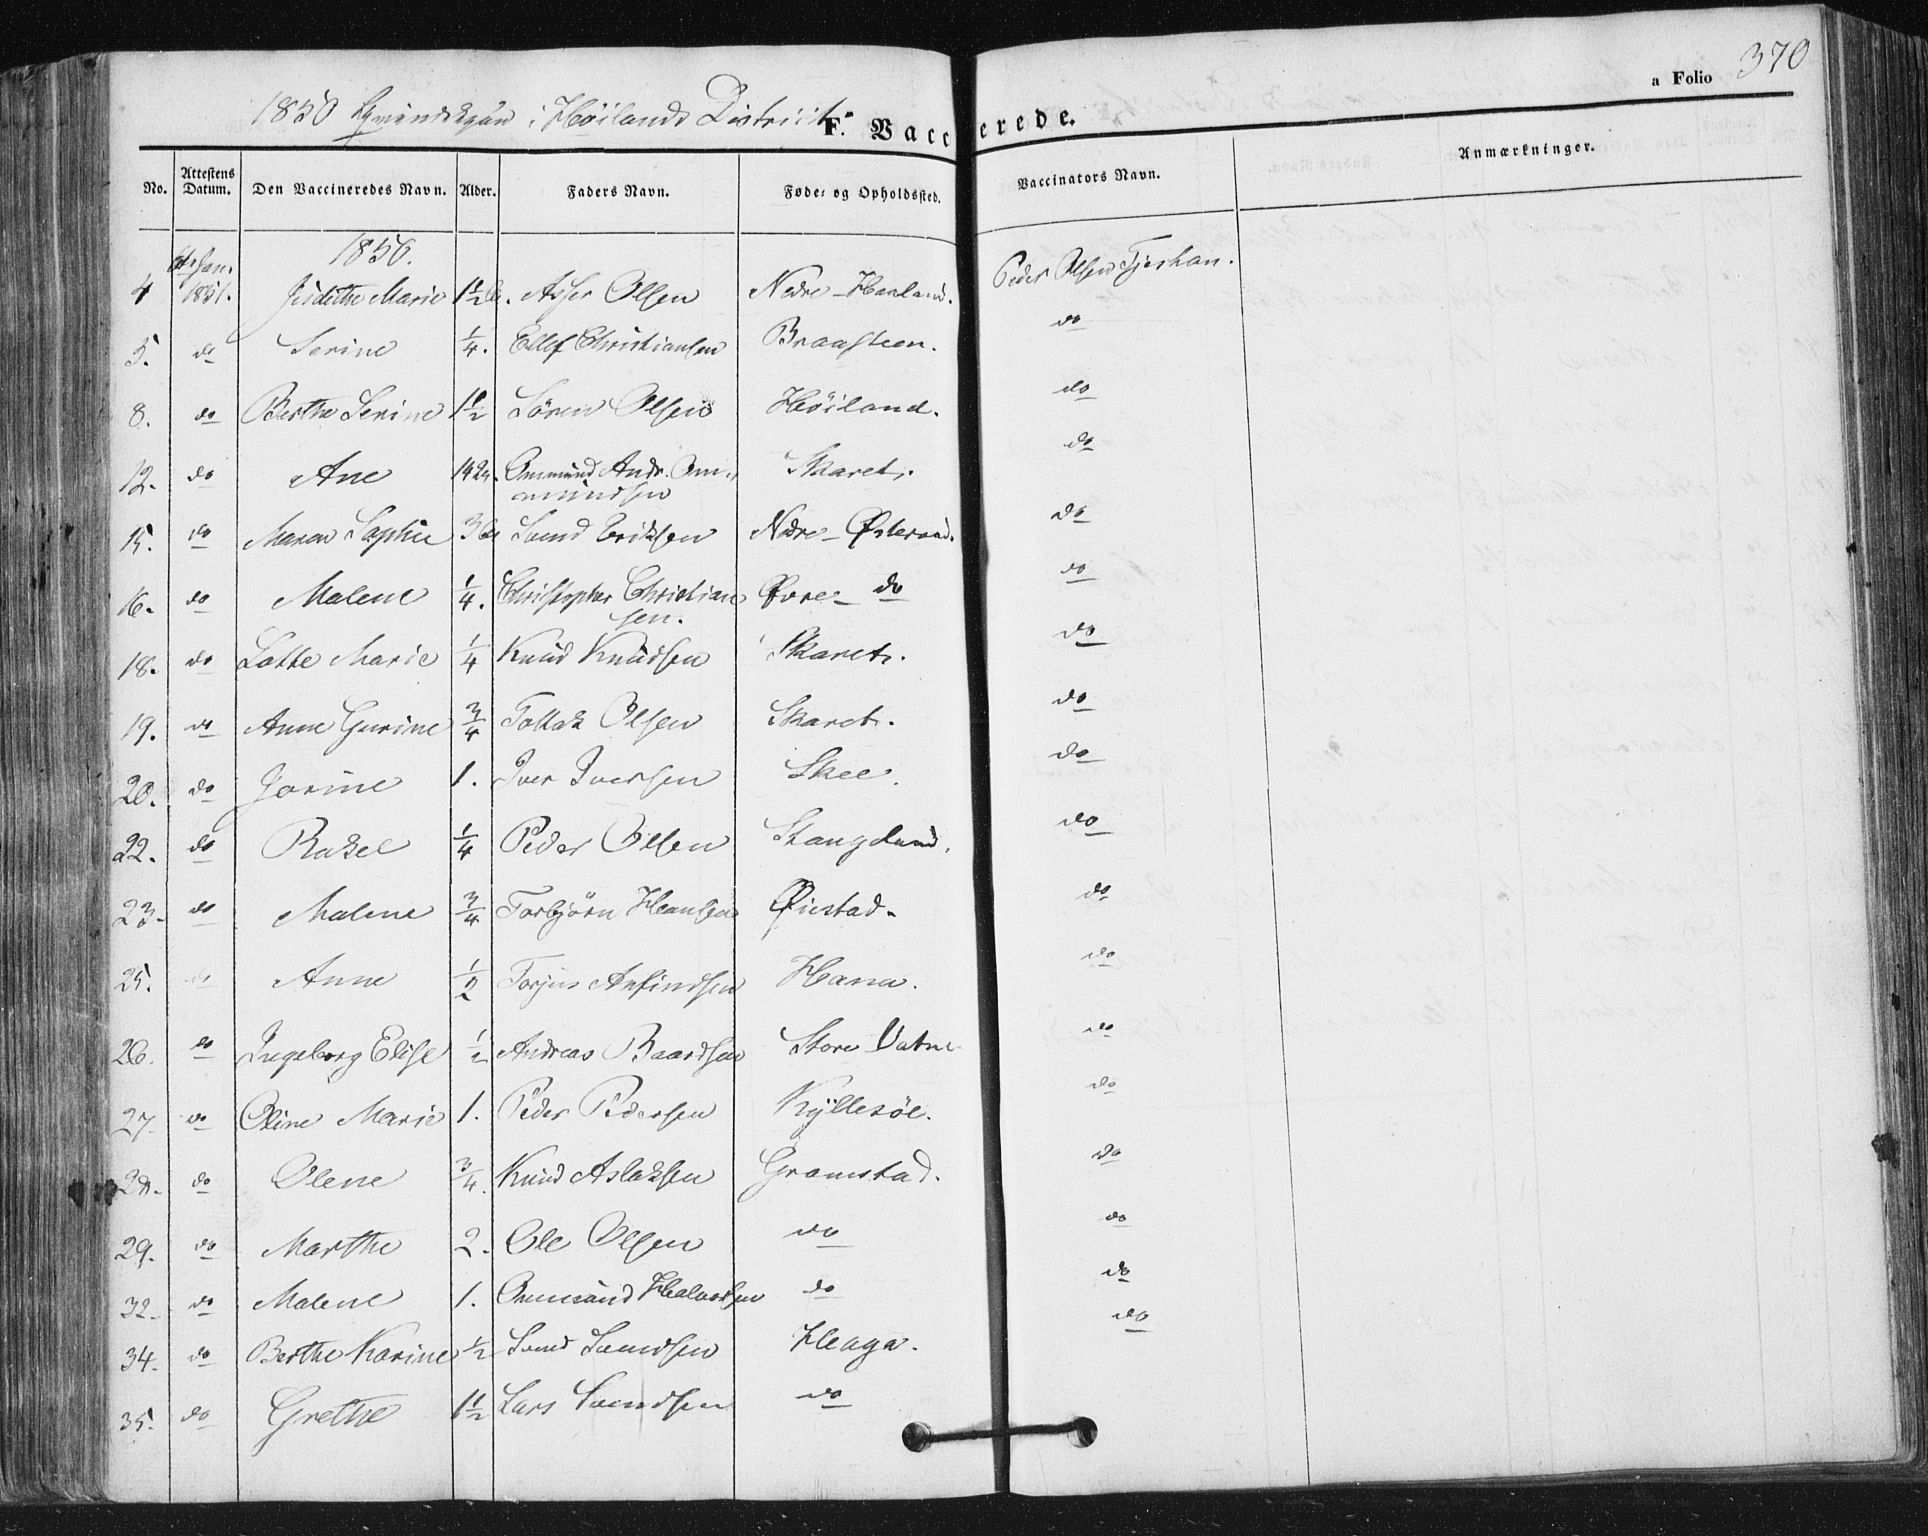 a Folio 370
1850 i Höilands District
F. Vaccinerede.
No. Attestens Datum. Den Vaccineredes Navn. Alder. Faders Navn. Føde- og Opholdssted. Vaccinators Navn. Anmærkninger.
1850.
4 Jan. 1851. Judithe Marie 1½ Asser Olsen Nedre-Hanland. Peder Olsen Tjeshan.
5. do Serine ¼. Ellef Christiansen Braasteen. do
8. do Berthe Serine 1½ Sören Olsen Höiland. do
12. do Ane Ommund Andr. Om-
mundsen Skaret. do
15. do Maren Sophie Svend Eriksen Nedre-Østeraad. do
16. do Malene ¼. Christopher Christian
sen. Øvre- do do
18. do Lotte Marie ¼ Knud Knudsen Skaret. do
19. do Anne Gurine ¾ Tollak Olsen Skaret. do
20. do Jorine 1. Iver Iversen Skee. do
22. do Rakel ¼ Peder Olsen Stangeland. do
23. do Malene ¾ Torbjörn Hansen Øiestad. do
25. do Anne ½ Torjus Anfindsen Hana. do
26. do Ingeborg Elise ½ Andreas Baardsen Store Vatne do
27. do Oline Marie 1. Peder Pedersen Kyllesöe. do
28. do Olene ¾. Knud Aslaksen Gramstad. do
29. do Marthe 2. Ole Olsen do do
32. do Malene 1. Ommund Halvorsen do do
34. do Berthe Karine ½ Svend Svendsen Haga. do
35. do Grethe 1½ Lars Svendsen do